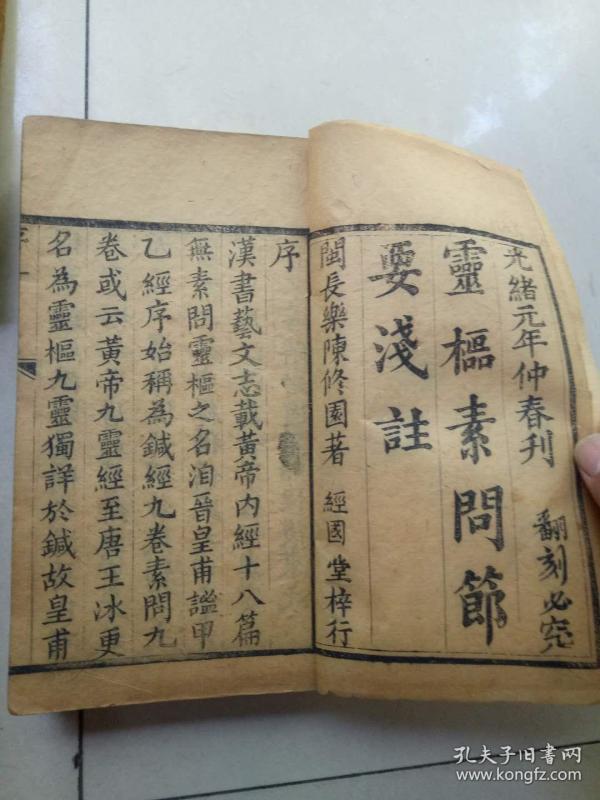 光緒元年仲春刊
翻刻必究
靈樞素問節
要淺註
閩長樂陳修園著 經國堂梓行
序
漢書藝文志載黃帝內經十八篇
無素問靈樞之名洎晉皇甫謐甲
乙經序始稱為鍼經九卷素問九
卷或云黃帝九靈經至唐王冰更
名為靈樞九靈獨詳於鍼故皇甫
孔夫子旧书网
www.kongfz.com